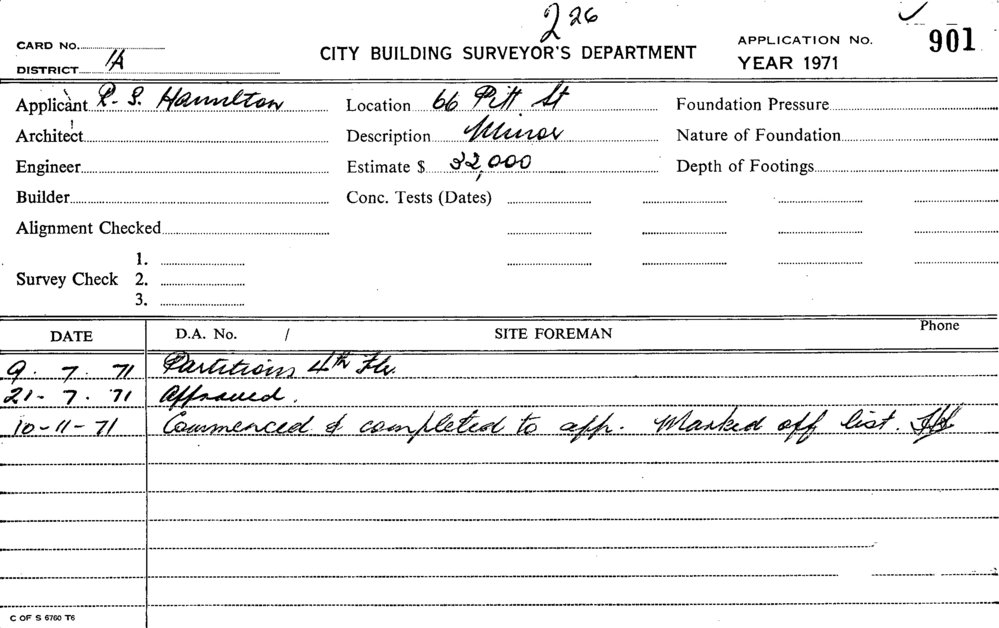 226
CARD No. CITY BUILDING SURVEYOR'S DEPARTMENT APPLICATION No. 901
DISTRICT 1A YEAR 1971
Applicant R. S. Hamilton Location 66 Pitt St Foundation Pressure
Architect Description Minor Nature of Foundation
Engineer Estimate $ 32,000 Depth of Footings
Builder Conc. Tests (Dates)
Alignment Checked
1.
Survey Check 2.
3.
DATE D.A. No. / SITE FOREMAN Phone
9. 7. 71 Partitions 4th Flr.
21-7. 71 Approved.
10-11-71 Commenced & completed to app. Marked off list.
C OF S 6760 T6